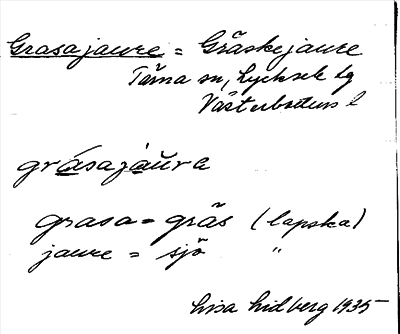 Grasajaure = Gräskejaure
Tärna sn, Lycksele lg
Västerbottens l
gråsajaura
grasa = gräs (lapska)
jaure = sjö "
Lisa Lidberg 1935